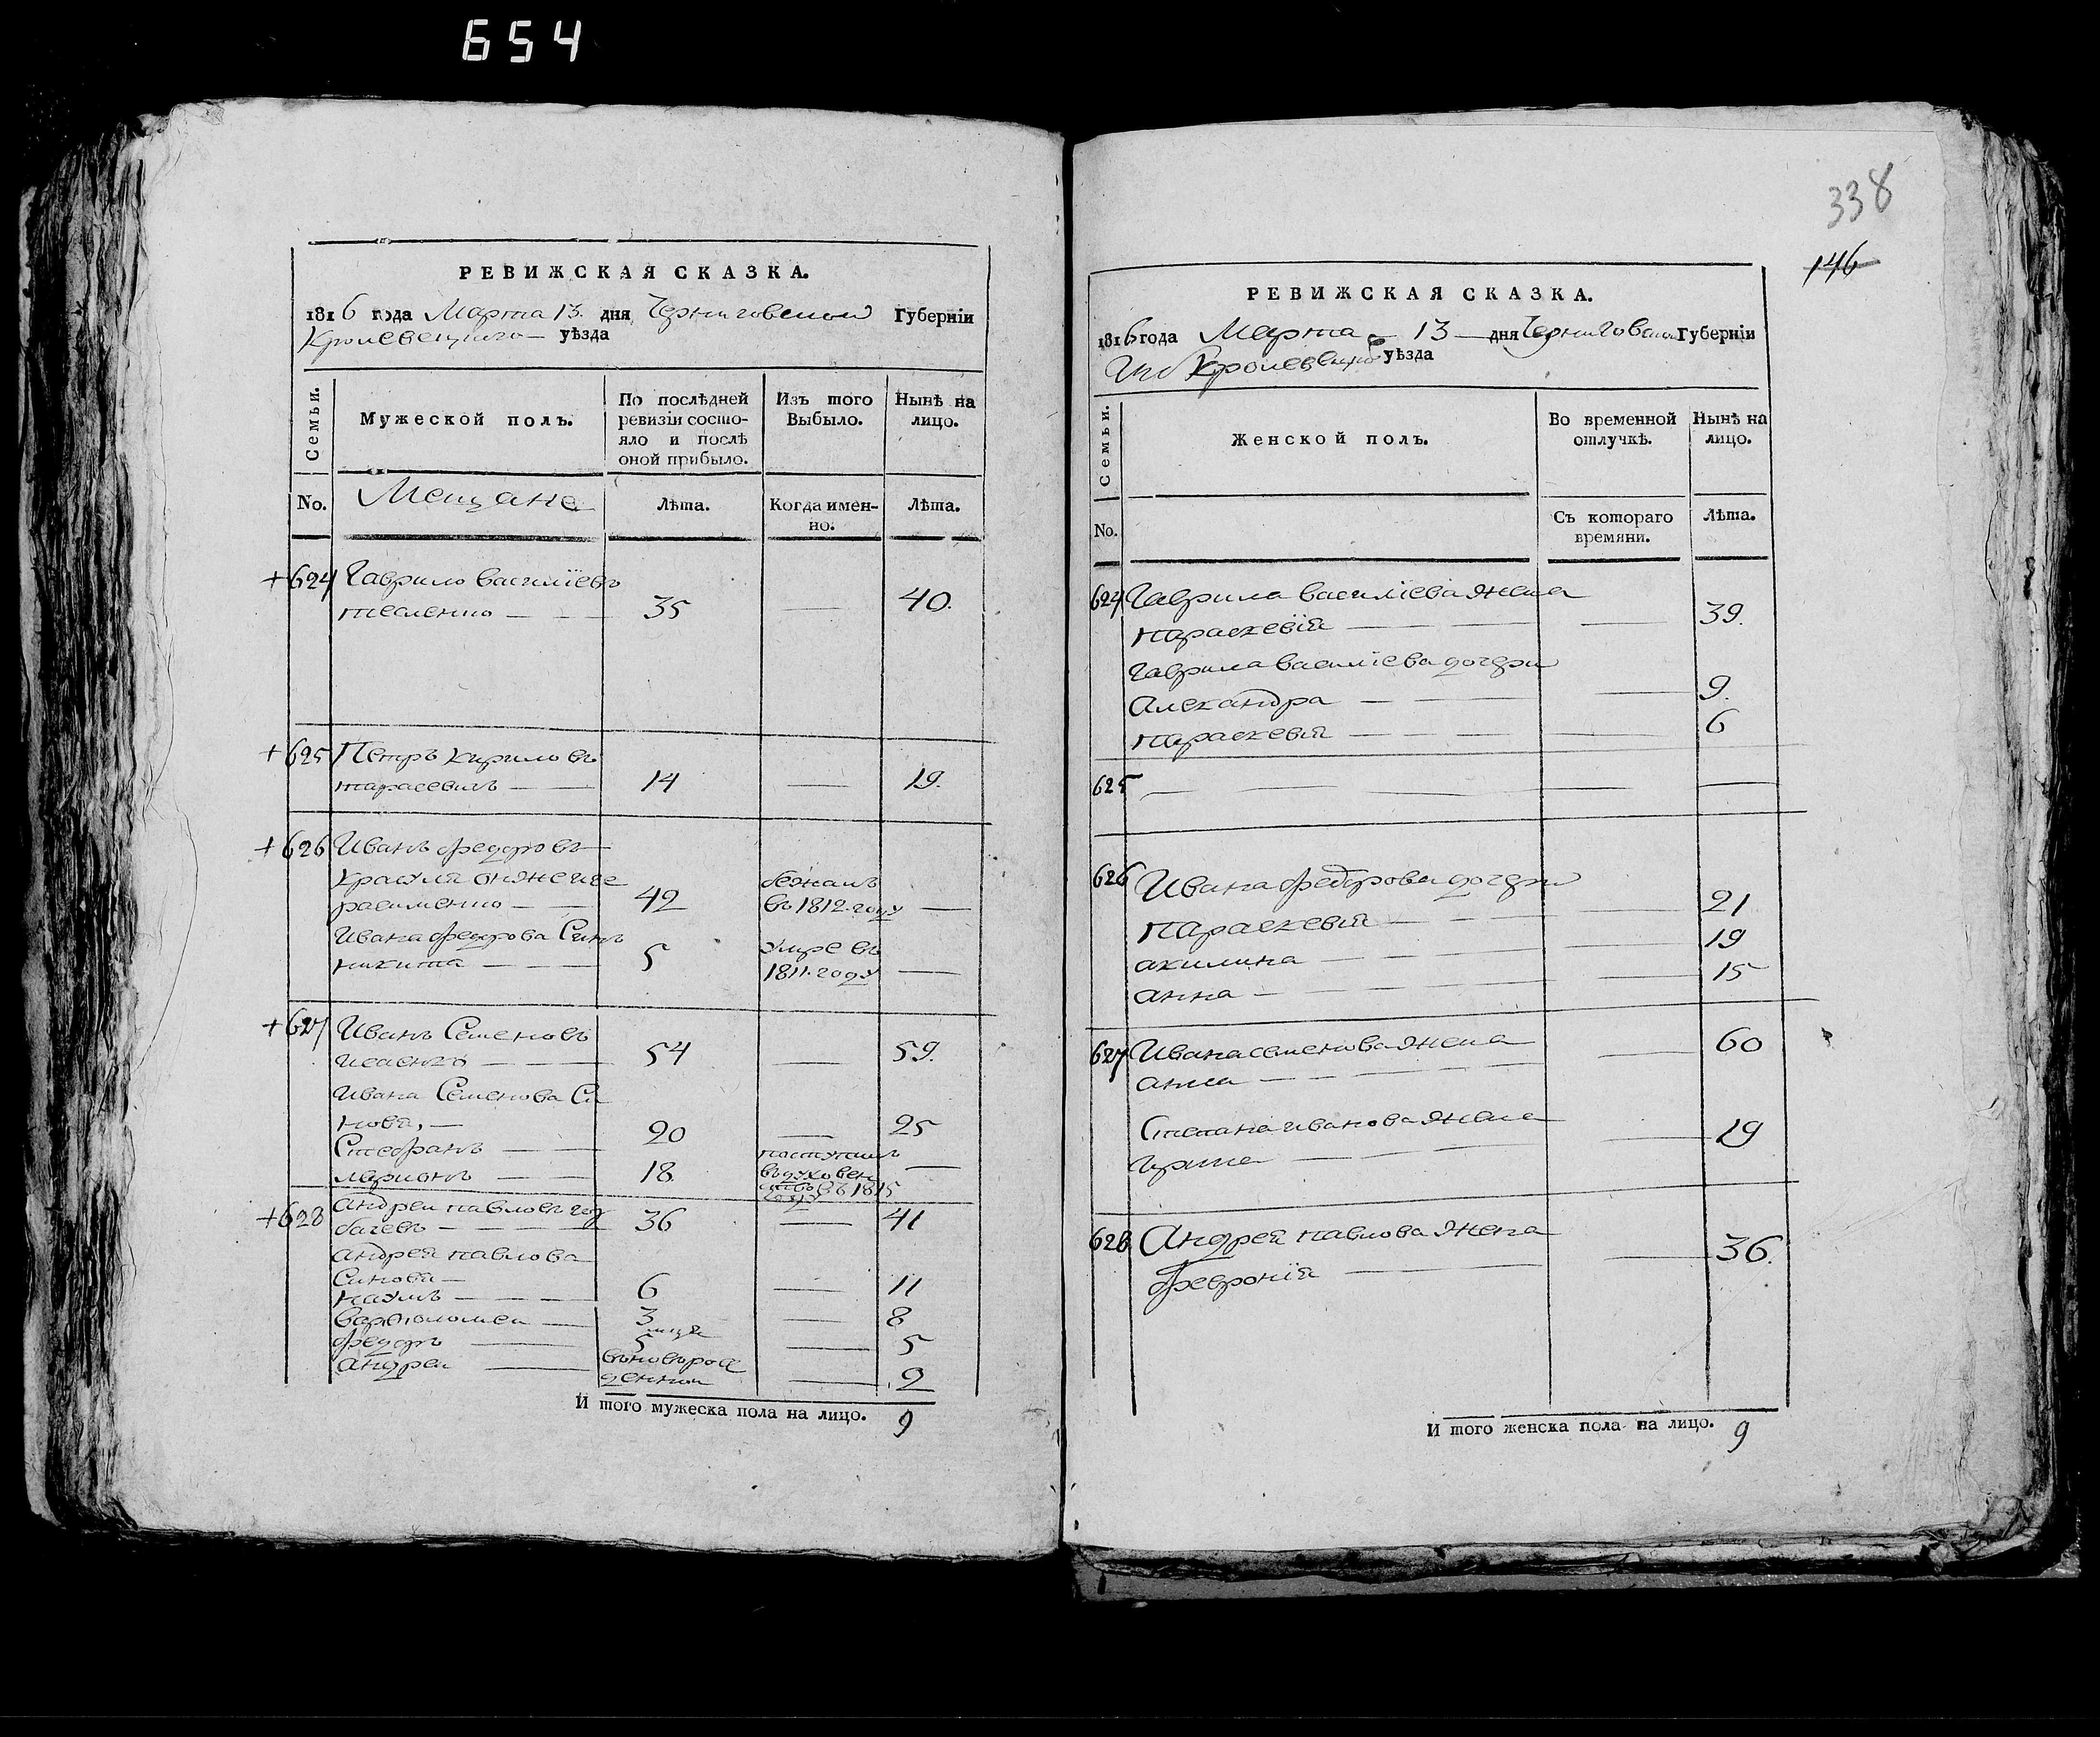 654
РЕВИЖСКАЯ СКАЗКА.
1816 года Марта 13. дня Черниговской Губерніи
Кролевецкого уѣзда
Семьи.
Мужеской полъ.
По послѣдней ревизіи состояло и послѣ оной прибыло.
Изъ того Выбыло.
Нынѣ на лицо.
No.
Мещане
Лѣта.
Когда именно.
Лѣта.
+624 Гаврило василіевъ
тесленко — — — 35 — 40.
+625 Петръ кириловъ
тарасевичъ — — 14 — 19.
+626 Иванъ федоровъ
красуля онже
42 бежалъ въ 1812 году —
Ивана федорова Синъ
никита — — — 5 умре въ 1811 году —
+627 Иванъ Семеновъ
исаенко — — — 54 — 59.
ивана Семенова Си
новя, —
Стефанъ — — 20 — 25
ларионъ — — 18. поступилъ въ духовен ство въ 1815 году —
+628 андрей павловъ
36 — 41
андрея павлова
Синовя —
наумъ — — — 6 — 11
варфоломеи — 3 — 8
федоръ — 5 — 5
андреи — въновърож денныи — 2
И того мужеска пола на лицо. 9
338
146
РЕВИЖСКАЯ СКАЗКА.
1816 года Марта 13 дня Черниговской Губерніи
Кролевецкого уѣзда
Семьи.
Женской полъ.
Во временной отлучкѣ.
Нынѣ на лицо.
No.
Съ котораго времяни.
Лѣта.
624 Гаврила василіева жена
параскевія — — — — 39.
Гаврила василіева дочери
Александра — — — 9.
параскевія — — — 6
625 — — — — — —
626 Ивана федорова дочери
параскевія — — — 21
акилина — — — 19
анна — — — 15
627 Ивана семенова жена
анна — — — — 60
Степана иванова жена
ирина — — — 19
628 Андрея павлова жена
февронія — — — 36.
И того женска пола на лицо. 9